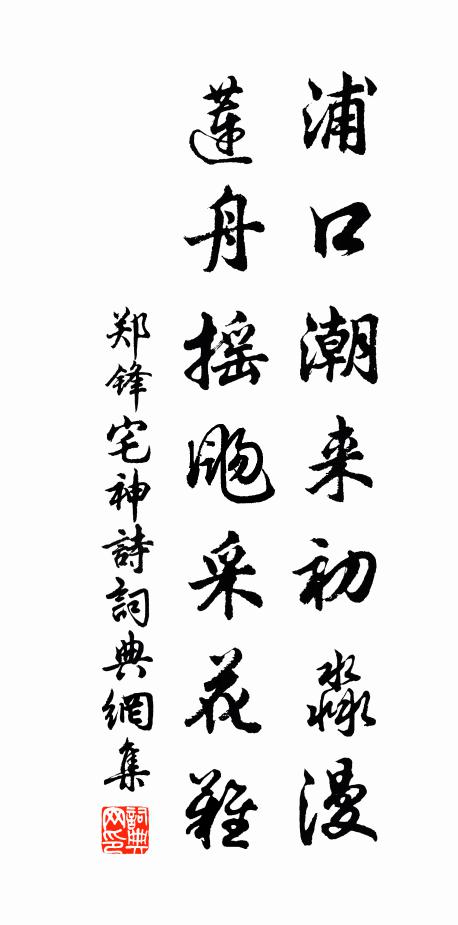 浦口潮来初淼漫
蓮舟摇飏采花難
郑锋宅神詩詞典網集
詞典网印